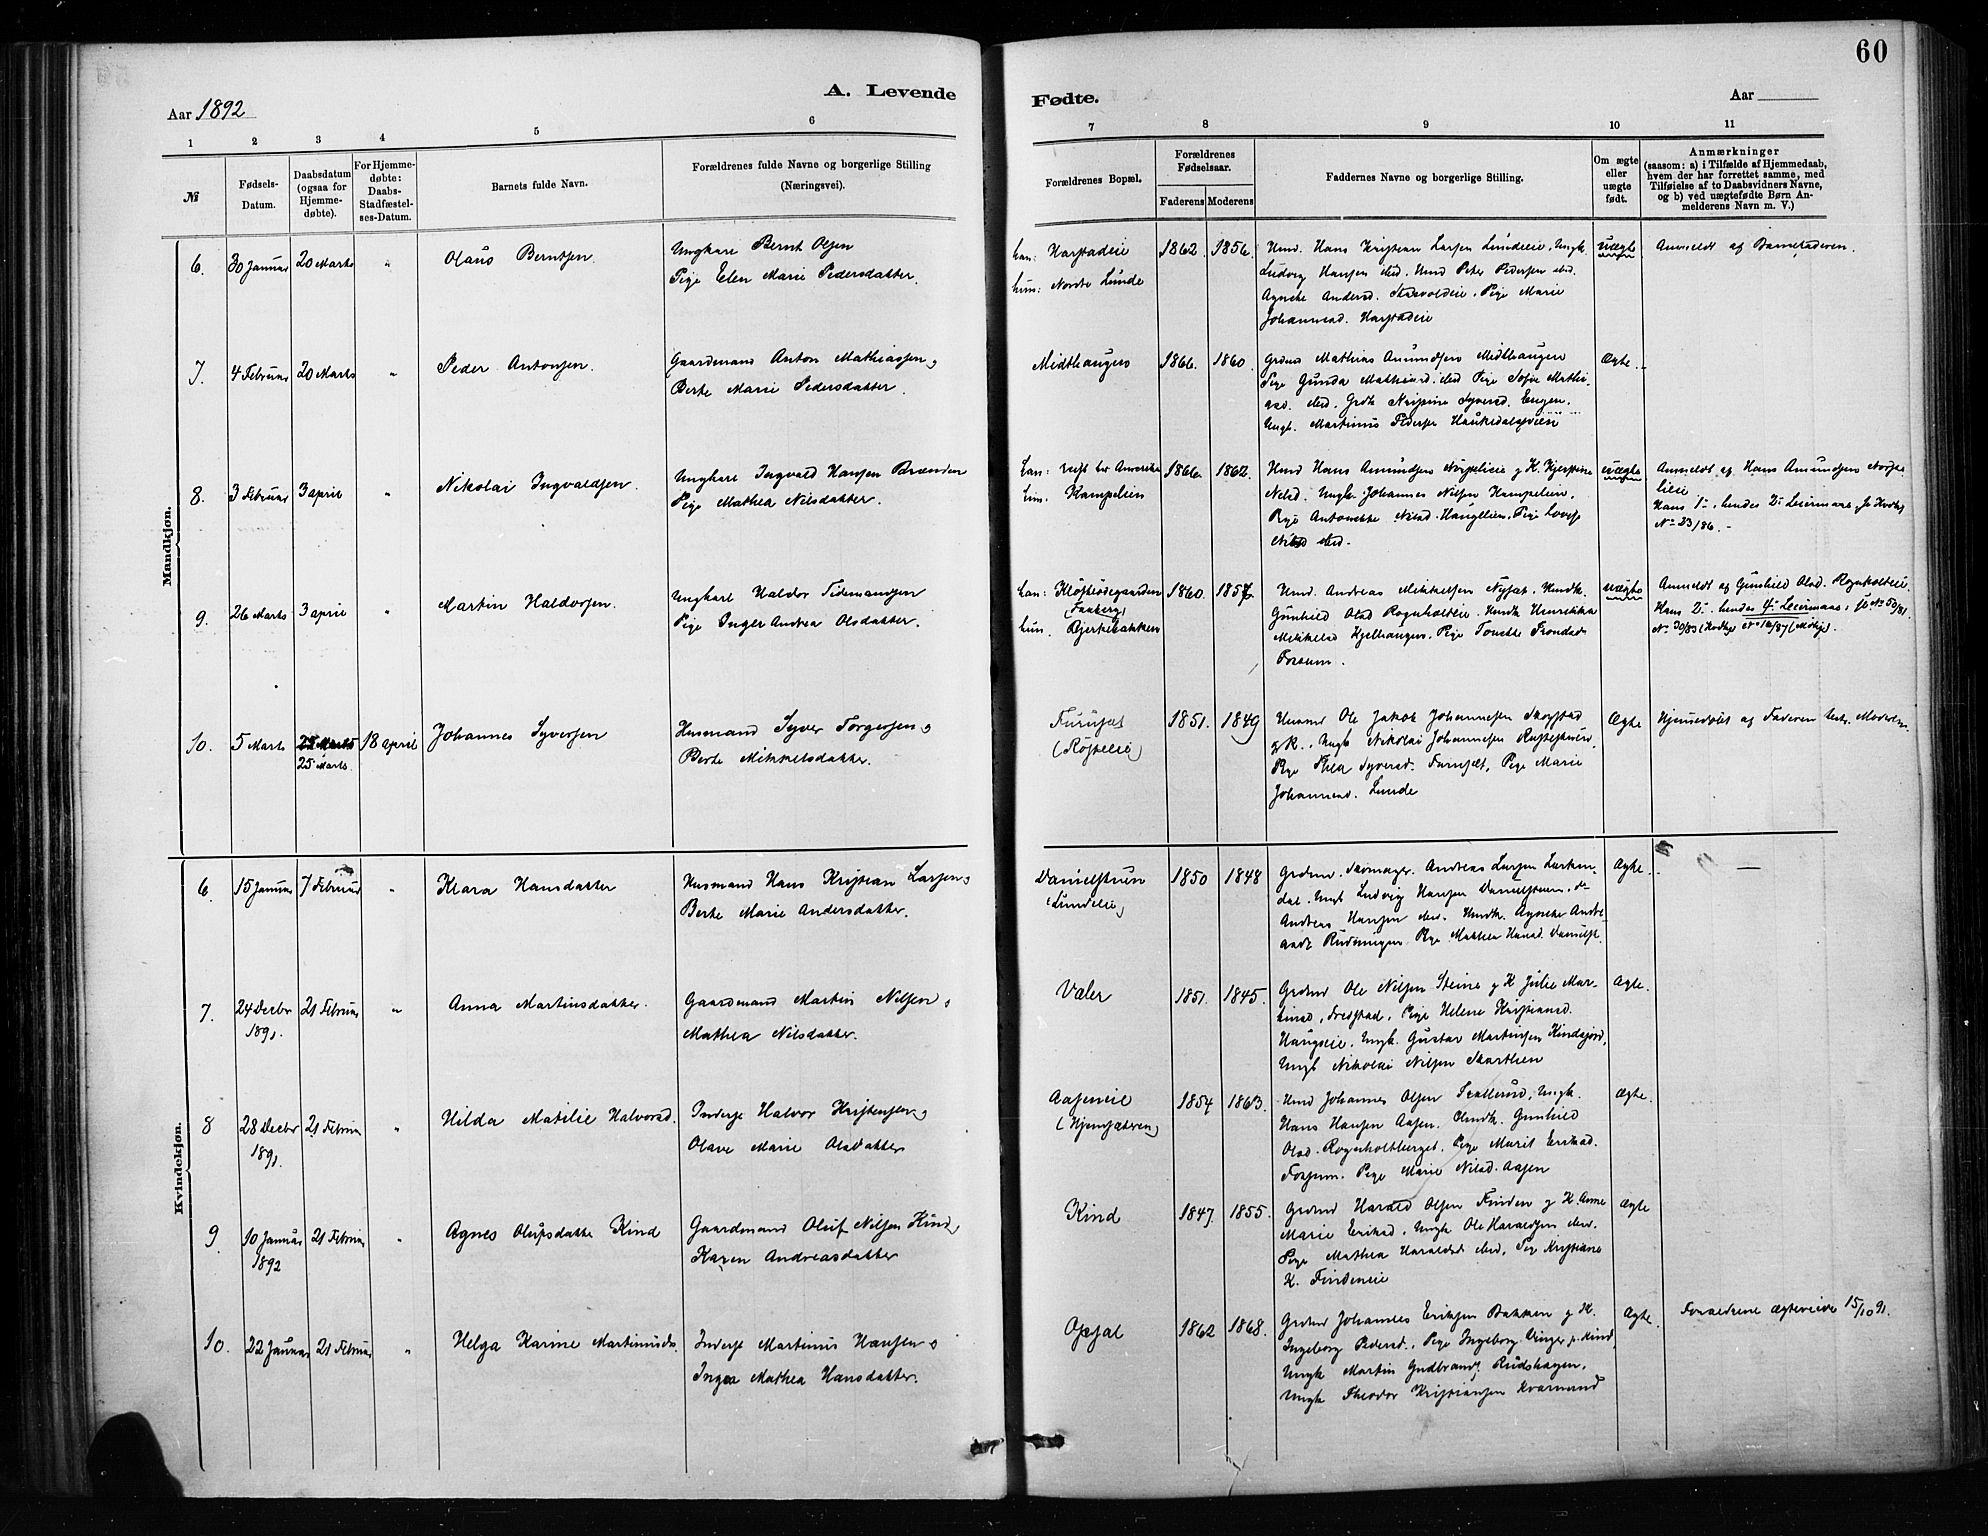 60
Aar 1892
A. Levende
Fødte.
Aar
1 2 3 4 5 6 7 8 9 10 11
№
Fødsels-
Datum.
Daabsdatum
(ogsaa for
Hjemme-
døbte).
For Hjemme-
døbte:
Daabs-
Stadfæstel-
ses-Datum.
Barnets fulde Navn.
Forældrenes fulde Navne og borgerlige Stilling
(Næringsvei).
Forældrenes Bopæl.
Forældrenes
Fødselsaar.
Faderens Moderens
Faddernes Navne og borgerlige Stilling.
Om ægte
eller
uægte
født.
Anmærkninger
(saasom: a) i Tilfælde af Hjemmedaab,
hvem der har forrettet samme, med
Tilføielse af to Daabsvidners Navne,
og b) ved uægtefødte Børn An-
melderens Navn m. V.)
Mandkjøn.
6. 30 Januar 20 Marts " Olaus Berntsen
Ungkarl Bernt Olsen
Pige Elen Marie Pedersdatter.
han: Harstadeie
hun: Nordre Lunde
1862. 1856.
Husmd. Hans Kristian Larsen Lundeeie, Ungk.
Ludvig Hansen ibid. Husmd Peter Pedersen ibid.
Agnete Andersd. Pige Marie
Johannesd. Harstadeie
uægte
Anmeldt af Barnefaderen.
7. 4 Februar 20 Marts " Peder Antonsen.
Gaardmand Anton Mathiassen,
Berte Marie Pedersdatter.
Midthaugen 1866. 1860.
Grdmd Mathias Amundsen Midthaugen
Pige Gunda Mathiasd. ibid Pige Sofie Mathi-
asd. ibid. Grdk Kristine Syversd. Engen,
Ungk. Martinus Pedersen
Ægte.
8. 3 Februar 3 april " Nikolai Ingvaldsen.
Ungkarl Ingvald Hansen Brænden
Pige Mathea Nilsdatter.
han: reist til Amerika
hun: Kampelien
1866. 1862.
Husmd Hans Amundsen
Nilsd. Ungk. Johannes Nilsen Kampelien,
Pige Antonette Nilsd. Pige Lovise
Nilsd ibid.
uægte
Anmeldt af Hans Amundsen
lieie
Hans 1ste, hendes 2. Leiermaal,
No 23/86.
9. 26 Marts 3 april " Martin Haldorsen.
Ungkarl Haldor Tidemansen
Pige Inger Andrea Olsdatter.
han:
(Faaberg)
hun. Bjerkebakken
1860. 1857.
Husmd. Andreas Mikkelsen Husmdk.
Gunhild Olsd Rognholteie. Husmdk Henrikka
Mikkelsd Kjelhaugen, Pige Tonette Trondsd
Fossum.
uægte
Anmeldt af Gunhild Olsd. Rognholteie
Hans 2., hendes 4. Leiermaal,
10. 5 Marts 25 Marts 18 april Johannes Syversen
25 Marts.
Husmand Syver Torgersen,
Berte Mikkelsdatter.
Furusæt
1851. 1849
Husmd Ole Jakob Johannesen
g K., Ungk Nikolai Johannesen
Pige Thea Syversd. Furusæt, Pige Marie
Johannesd. Lunde
Ægte
Hjemmedøbt af Faderen
Kvindekjøn.
6 15 Januar 7 Februar " Klara Hansdatter
Husmand Hans Kristian Larsen,
Berte Marie Andersdatter.
Danielstuen
(Lundeeie)
1850 1848
Grdmd. Skomager. Andreas Larsen
dal. Ungk Ludvig Hansen Danielstuen,
Andreas Hansen ibid. Husmdk. Agnete Andre-
asdt. Rudningen. Pige Mathea Hansd. Danielst.
Ægte.
7. 24 Decbr 21 Februar " Anna Martinsdatter.
1891.
Gaardmand Martin Nilsen,
Mathea Nilsdatter.
Valer 1851. 1845.
Grdmd Ole Nilsen Steine g K Julie Mar-
tinsd, Pige Helene Kristiansd.
Haugseie. Ungk. Gustav Martinsen
Ungk Nikolai Nilsen Skartlien
Ægte.
8 28 Decbr 21 Februar " Hilda Matilie Halvorsd.
1891.
Inderst Halvor Kristensen,
Olave Marie Olsdatter
Aaseneie
1854 1863.
Husmd Johannes Olsen Ungk.
Hans Hansen Aasen. Husmdk. Gunhild
Olsd. Rognholtberget. Pige Marit Eriksd.
Fossum. Pige Marie Nilsd. Aasen
Ægte.
9 10 Januar 21 Februar " Agnes Olufsdatter Kind
1892
Gaardmand Oluf Nilsen Kind,
Karen Andreasdatter
Kind 1847. 1855.
Grdmd Harald Olsen Finden g K. Anne
Marie Eriksd. Ungk Ole Haraldsen ibid.
Pige Mathea Haraldsd. ibid, Pige Kristiane
K. Findeneie
Ægte
10. 22 Januar 21 Februar " Helga Karine Martinusd.
Inderst Martinus Hansen,
Inga Mathea Hansdatter.
Opsal 1862 1868.
Grdmd Johannes Eriksen Bakken g K.
Ingeborg Pedersd. Pige Ingeborg Kind,
Ungk Martin Gudbrands. Rudshagen,
Ungk Theodor Kristiansen Kvarnund
Ægte.
Forældrene ægteviede 15/10 91.